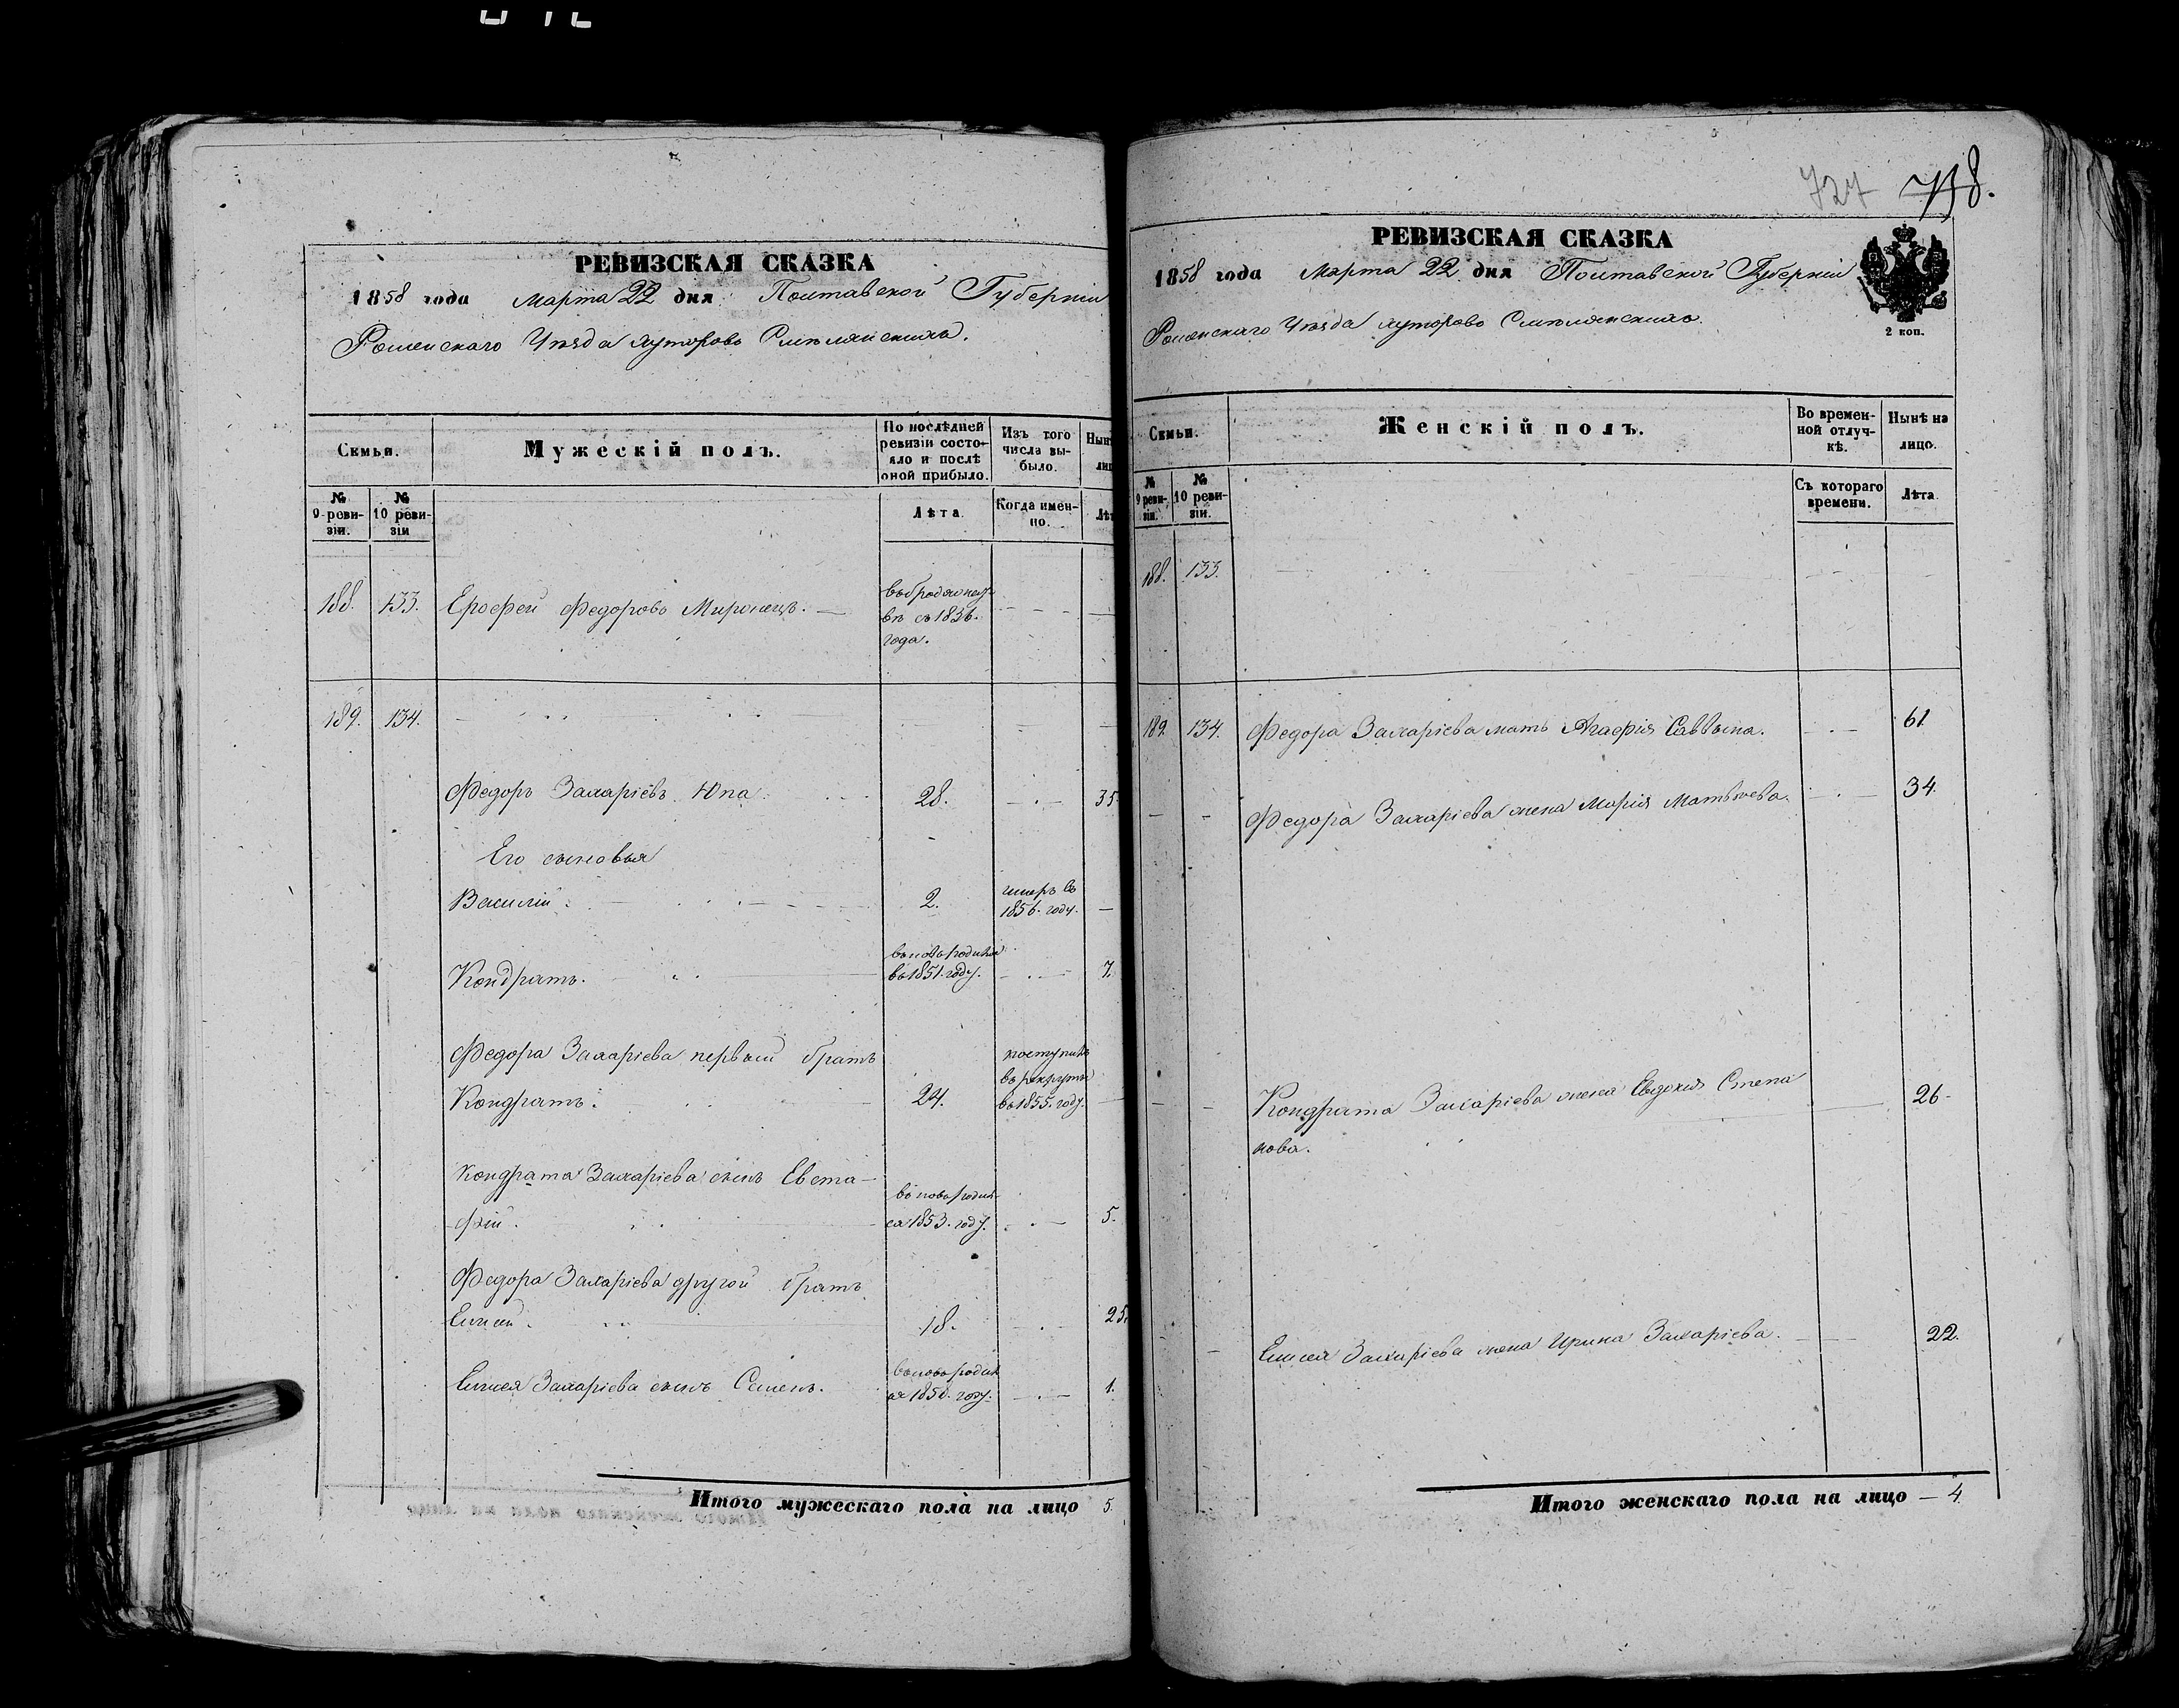 РЕВИЗСКАЯ СКАЗКА
1858 года Марта 22 дня Полтавской Губернiи
Роменскаго Уѣзда хуторовъ Смѣлянскихъ.
Семьи.
Мужескiй полъ.
По послѣдней ревизiи состояло и послѣ оной прибыло.
Изъ того числа выбыло.
№ 9 ревизiи.
№ 10 ревизiи
Лѣта.
Когда именно.
188. 133. Ерофей Федоровъ Миронецъ. — въ бродяжнв съ 1836. года.
189. 134.
Федоръ Захарiевъ Юпа. 28. 35
Его сыновья
Василiй. 2. умеръ въ 1856. году.
Кондратъ. вновь родился въ 1851. году. 7.
Федора Захарiева первый братъ
Кондратъ. 24. поступилъ въ рекруты въ 1855. году.
Кондрата Захарiева сынъ Евста-
фiй. вновь родил- ся 1853. году. 5.
Федора Захарiева другой братъ
Елисей. 18. 25.
Елисея Захарiева сынъ Семенъ. вновь родил ся 1858. году. 1.
Итого мужескаго пола на лицо 5.
727 718.
РЕВИЗСКАЯ СКАЗКА
1858 года Марта 22 дня Полтавской Губернiи
Роменскаго Уѣзда хуторовъ Смѣлянскихъ.
2 коп.
Семьи.
Женскiй полъ.
Во временной отлучкѣ.
Нынѣ на лицо.
№ 9 ревизiи.
№ 10 ревизiи.
Съ котораго времени.
Лѣта.
188. 133.
189. 134. Федора Захарiева мать Агафiя Саввына. 61
Федора Захарiева жена Марiя Матвѣева. 34.
Кондрата Захарiева жена Евдокiя Степа 26
нова.
Елисея Захарiева жена Ирина Захарiева. 22.
Итого женскаго пола на лицо — 4.